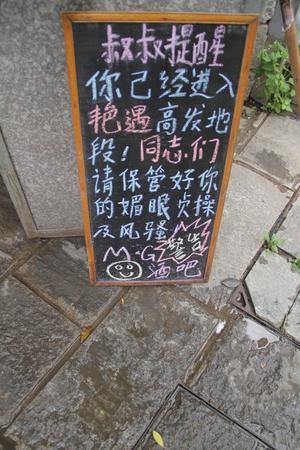 叔叔提醒
你已经进入
艳遇高发地
段！同志们
请保管好你
的媚眼贞操
及风骚
M·G 警告
酒吧